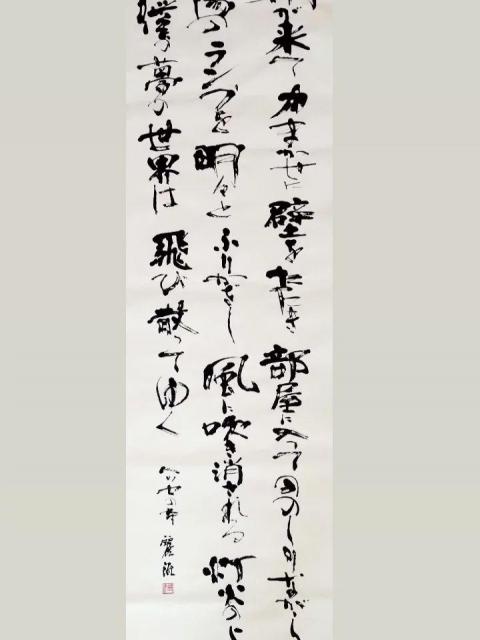 が来て 力まかせに 壁をたたき 部屋に入って ののしりながら
陽のランプを 明々と ふりかざし 風に吹き消される 灯火の
の夢の世界は 飛び散ってゆく